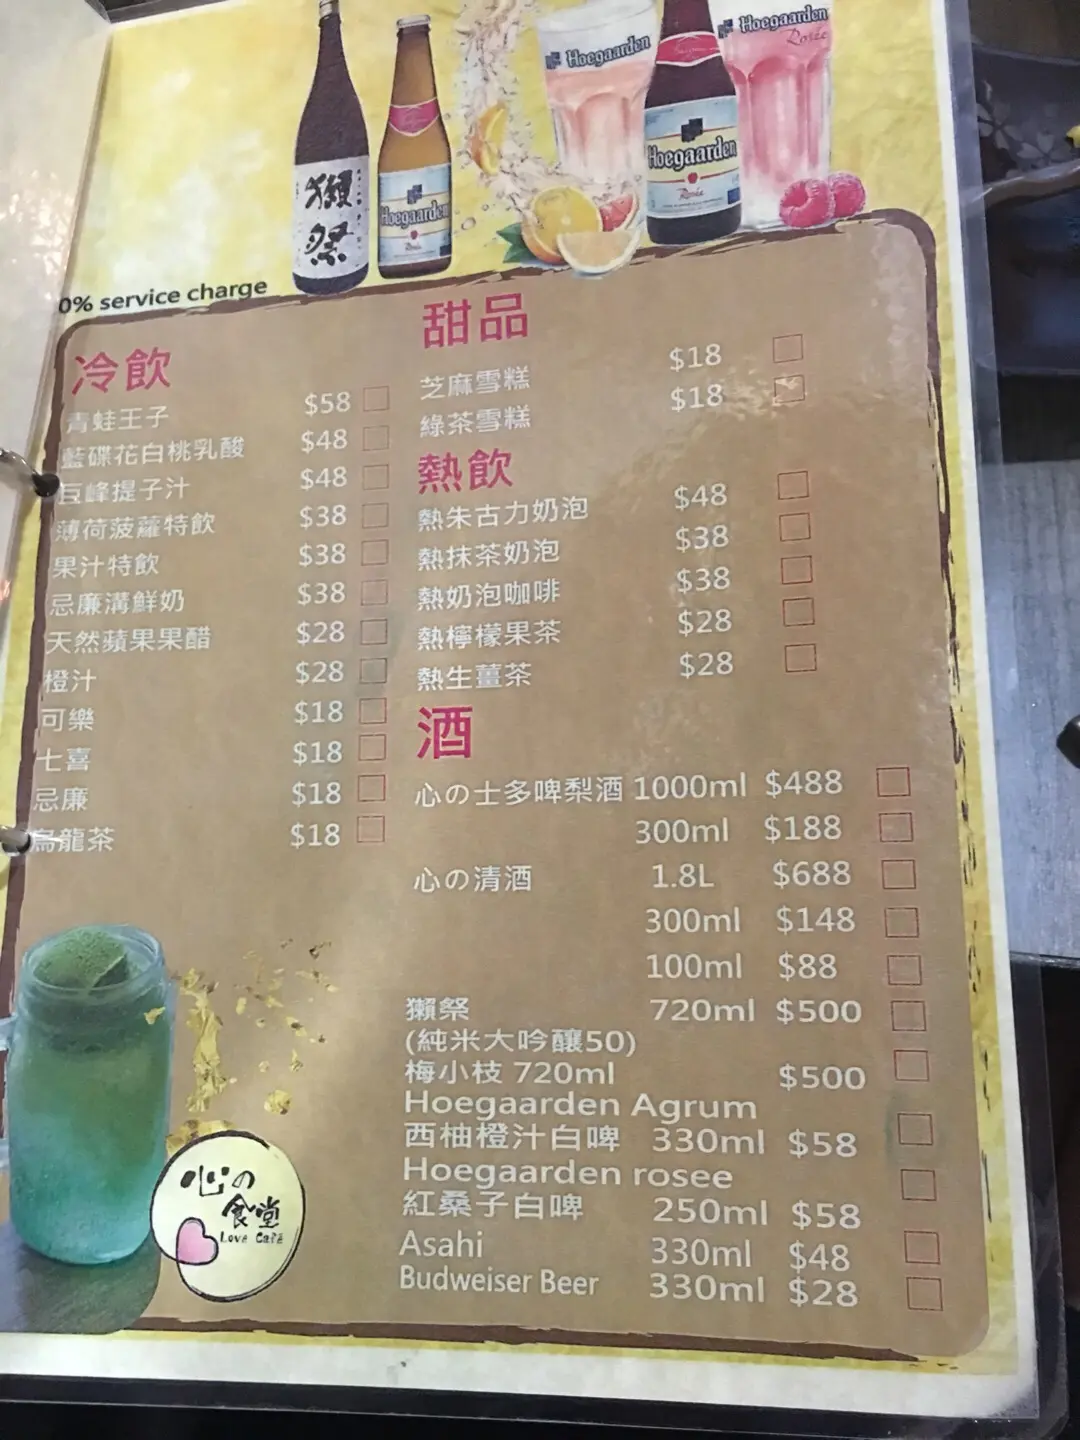 獺祭
Hoegaarden
Rosée
Hoegaarden
Hoegaarden
Rosée
Hoegaarden
Rosée
0% service charge
冷飲
青蛙王子 $58
藍碟花白桃乳酸 $48
巨峰提子汁 $48
薄荷菠蘿特飲 $38
果汁特飲 $38
忌廉溝鮮奶 $38
天然蘋果果醋 $28
橙汁 $28
可樂 $18
七喜 $18
忌廉 $18
烏龍茶 $18
甜品
芝麻雪糕 $18
綠茶雪糕 $18
熱飲
熱朱古力奶泡 $48
熱抹茶奶泡 $38
熱奶泡咖啡 $38
熱檸檬果茶 $28
熱生薑茶 $28
酒
心の士多啤梨酒 1000ml $488
300ml $188
心の清酒 1.8L $688
300ml $148
100ml $88
獺祭 720ml $500
(純米大吟釀50)
梅小枝 720ml $500
Hoegaarden Agrum
西柚橙汁白啤 330ml $58
Hoegaarden rosee
紅桑子白啤 250ml $58
Asahi 330ml $48
Budweiser Beer 330ml $28
心の
食堂
Love Café